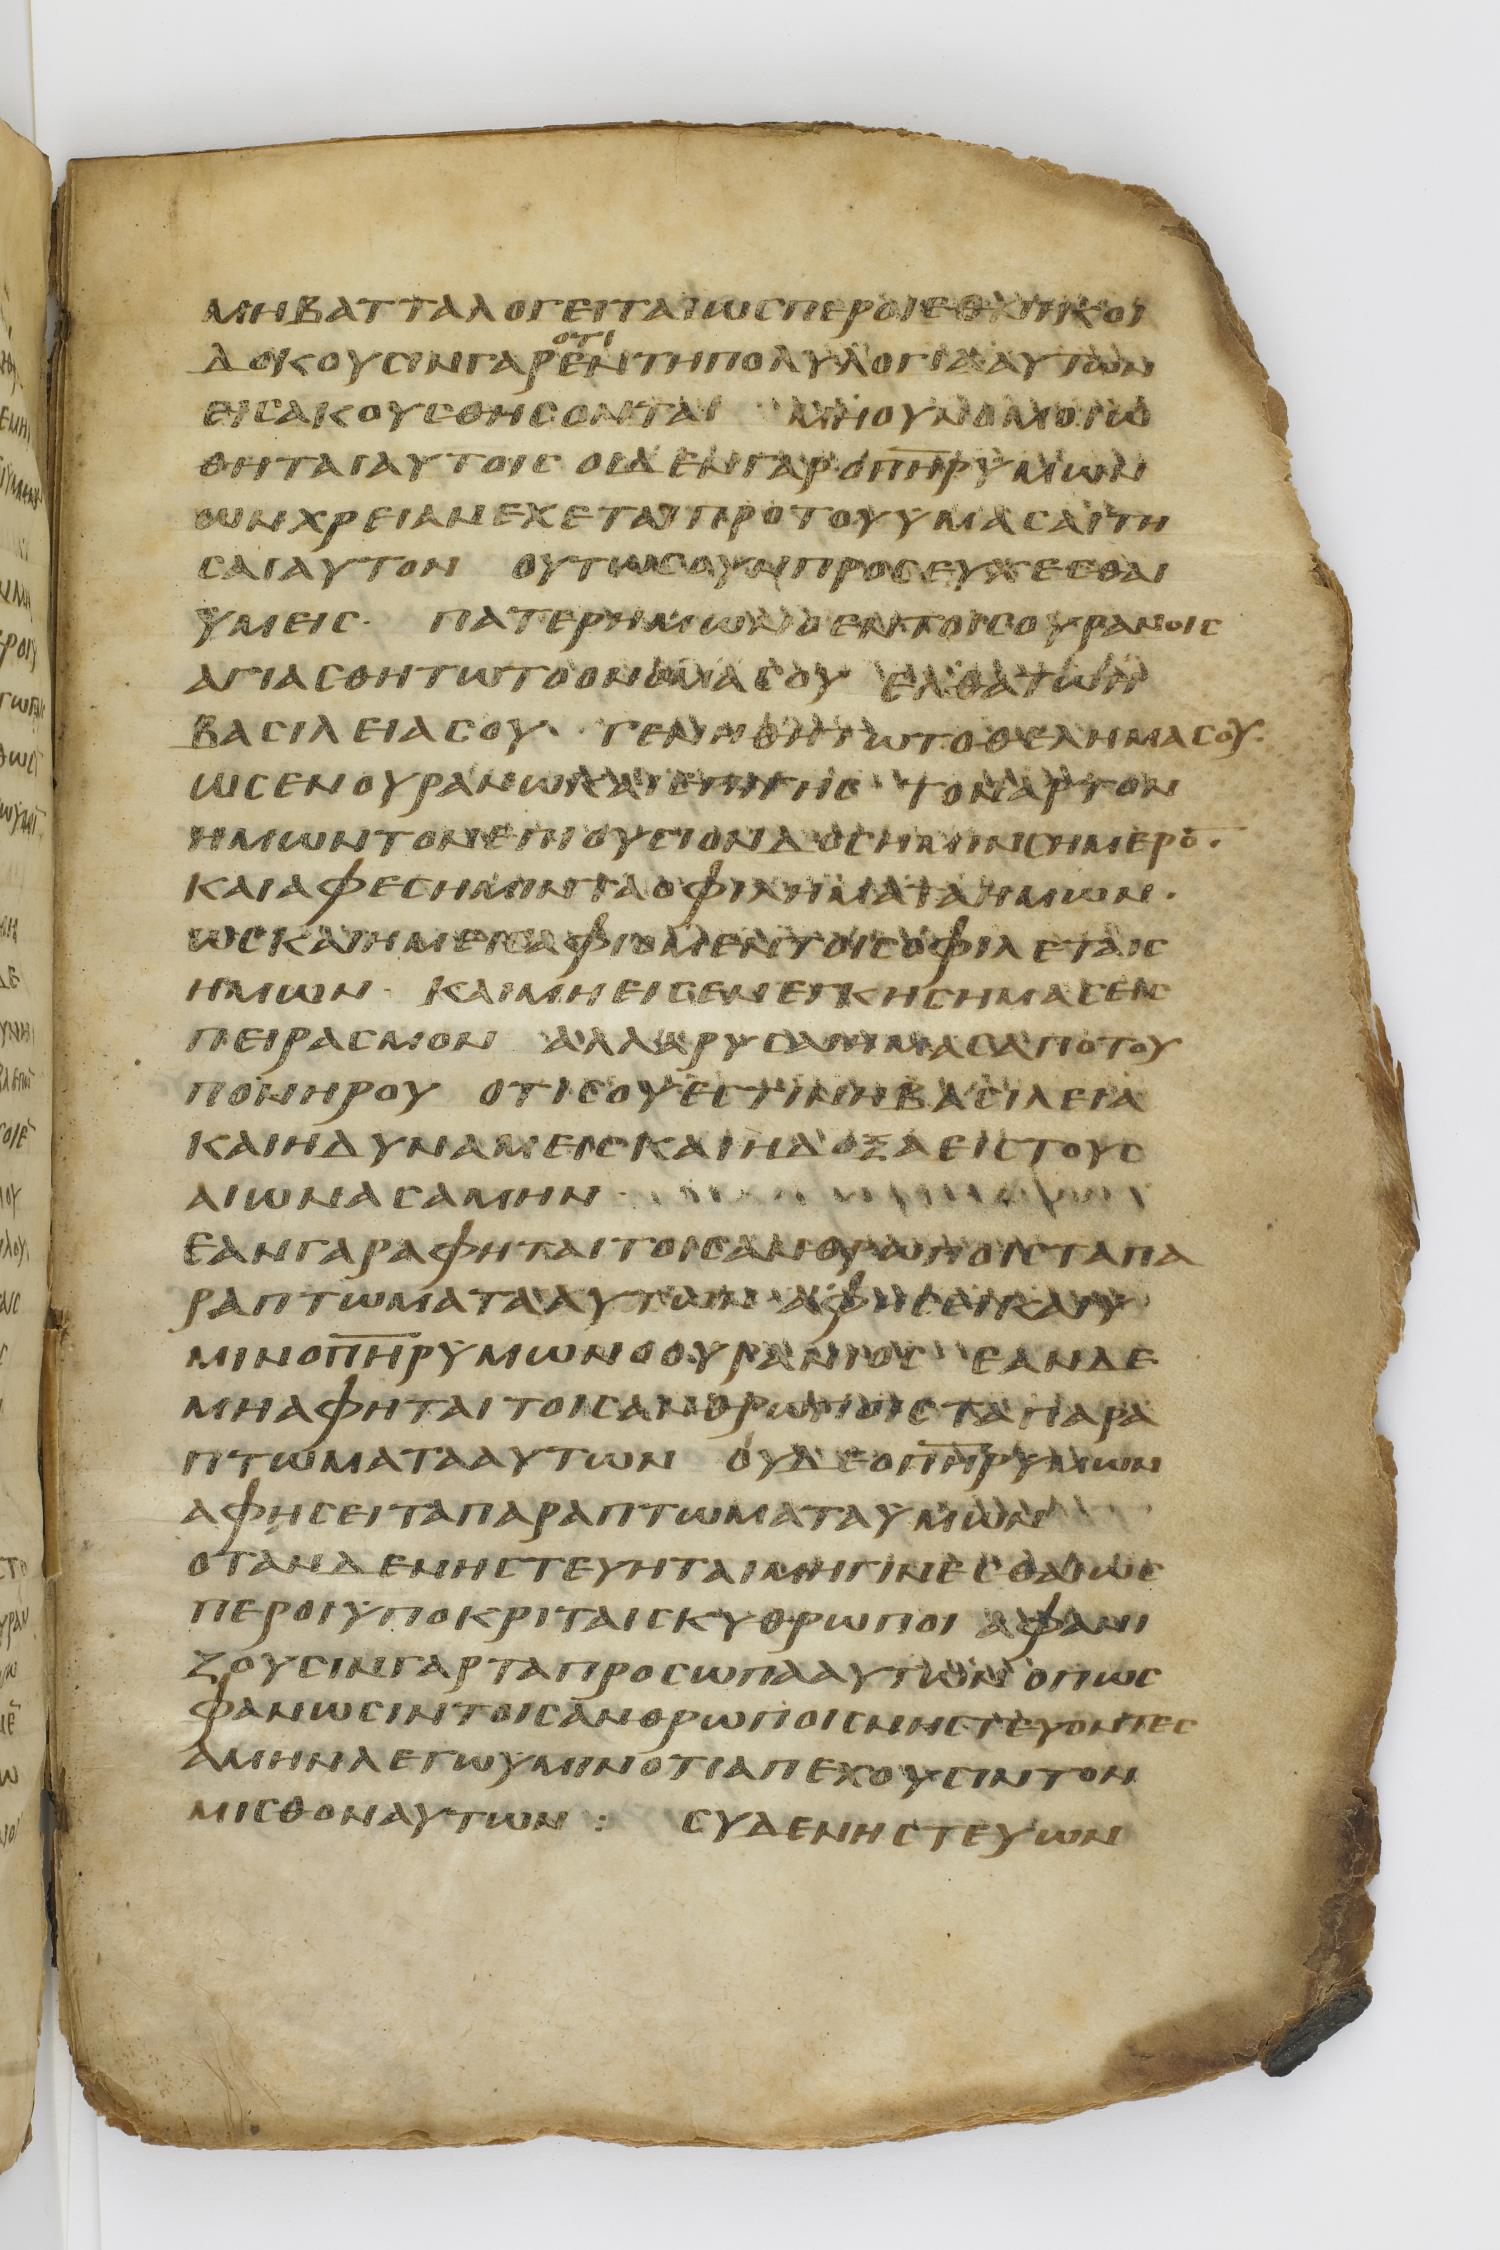 ΜΗΒΑΤΤΑΛΟΓΕΙΤΑΙΩϹΠΕΡΟΙΕΘΝΙΚΟΙ
ΔΟΚΟΥϹΙΝΓΑΡΟΤΙΕΝΤΗΠΟΛΥΛΟΓΙΑΑΥΤΩΝ
ΕΙϹΑΚΟΥϹΘΗϹΟΝΤΑΙ ΜΗΟΥΝΟΜΟΙΩ
ΘΗΤΑΙΑΥΤΟΙϹ ΟΙΔΕΝΓΑΡΟΠΗΡΥΜΩΝ
ΟΩΝΧΡΕΙΑΝΕΧΕΤΑΙΠΡΟΤΟΥΥΜΑϹΑΙΤΗ
ϹΑΙΑΥΤΟΝ ΟΥΤΩϹΟΥΝΠΡΟϹΕΥΧΕϹΘΑΙ
ΥΜΕΙϹ· ΠΑΤΕΡΗΜΩΝΟΕΝΤΟΙϹΟΥΡΑΝΟΙϹ
ΑΓΙΑϹΘΗΤΩΤΟΟΝΟΜΑϹΟΥ ΕΛΘΑΤΩΗ
ΒΑϹΙΛΕΙΑϹΟΥ· ΓΕΝΗΘΗΤΩΤΟΘΕΛΗΜΑϹΟΥ·
ΩϹΕΝΟΥΡΑΝΩΚΑΙΕΠΙΓΗϹ ΤΟΝΑΡΤΟΝ
ΗΜΩΝΤΟΝΕΠΙΟΥϹΙΟΝΔΟϹΗΜΙΝϹΗΜΕΡΟ̅·
ΚΑΙΑΦΕϹΗΜΙΝΤΑΟΦΙΛΗΜΑΤΑΗΜΩΝ·
ΩϹΚΑΙΗΜΕΙϹΑΦΙΟΜΕΝΤΟΙϹΟΦΙΛΕΤΑΙϹ
ΗΜΩΝ· ΚΑΙΜΗΕΙϹΕΝΕΓΚΗϹΗΜΑϹΕΙϹ
ΠΕΙΡΑϹΜΟΝ ΑΛΛΑΡΥϹΑΙΗΜΑϹΑΠΟΤΟΥ
ΠΟΝΗΡΟΥ ΟΤΙϹΟΥΕϹΤΙΝΗΒΑϹΙΛΕΙΑ
ΚΑΙΗΔΥΝΑΜΕΙϹΚΑΙΗΔΟΞΑΕΙϹΤΟΥϹ
ΑΙΩΝΑϹΑΜΗΝ·
ΕΑΝΓΑΡΑΦΗΤΑΙΤΟΙϹΑΝΘΡΩΠΟΙϹΤΑΠΑ
ΡΑΠΤΩΜΑΤΑΑΥΤΩΝ ΑΦΗϹΕΙΚΑΙΥ
ΜΙΝΟΠΗΡΥΜΩΝΟΟΥΡΑΝΙΟϹ ΕΑΝΔΕ
ΜΗΑΦΗΤΑΙΤΟΙϹΑΝΘΡΩΠΟΙϹΤΑΠΑΡΑ
ΠΤΩΜΑΤΑΑΥΤΩΝ ΟΥΔΕΟΠΗΡΥΜΩΝ
ΑΦΗϹΕΙΤΑΠΑΡΑΠΤΩΜΑΤΑΥΜΩΝ
ΟΤΑΝΔΕΝΗϹΤΕΥΗΤΑΙΜΗΓΙΝΕϹΘΑΙΩϹ
ΠΕΡΟΙΥΠΟΚΡΙΤΑΙϹΚΥΘΡΩΠΟΙ ΑΦΑΝΙ
ΖΟΥϹΙΝΓΑΡΤΑΠΡΟϹΩΠΑΑΥΤΩΝΟΠΩϹ
ΦΑΝΩϹΙΝΤΟΙϹΑΝΘΡΩΠΟΙϹΝΗϹΤΕΥΟΝΤΕϹ
ΑΜΗΝΛΕΓΩΥΜΙΝΟΤΙΑΠΕΧΟΥϹΙΝΤΟΝ
ΜΙϹΘΟΝΑΥΤΩΝ : ϹΥΔΕΝΗϹΤΕΥΩΝ